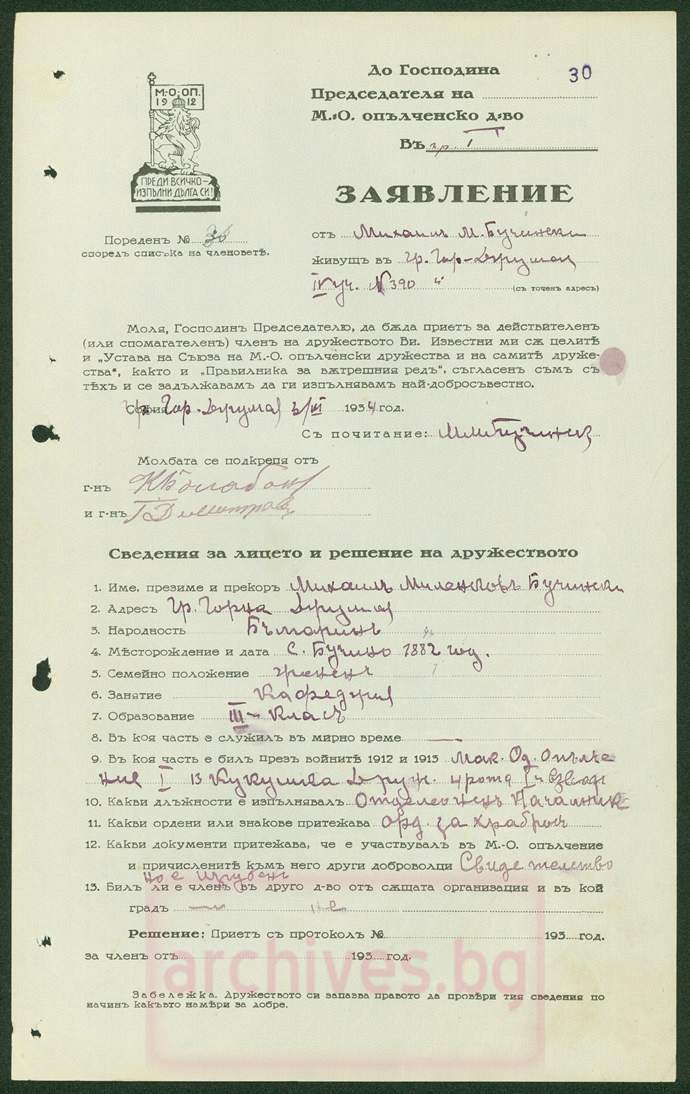 До Господина
30
Председателя на
М.-О. опълченско д-во
Въ гр. I
М.-О.-ОП.
19 12
ПРЕДИ ВСИЧКО-
ИЗПЪЛНИ ДЪЛГА СИ!
ЗАЯВЛЕНИЕ
Пореденъ № 36
споредъ списъка на членоветѣ.
отъ Михаилъ М. Бучински
живущъ въ гр. Гор-Джумая
IV уч. № 390
(съ точенъ адресъ)
Моля, Господинъ Председателю, да бѫда приетъ за действителенъ
(или спомагателенъ) членъ на дружеството Ви. Известни ми сѫ целитѣ
и „Устава на Съюза на М.-О. опълченски дружества и на самитѣ друже-
ства“, както и „Правилника за вѫтрешния редъ“, съгласенъ съмъ съ
тѣхъ и се задължавамъ да ги изпълнявамъ най-добросъвестно.
София Гор. Джумая 3/III 1934 год.
Съ почитание: М. Бучински
Молбата се подкрепя отъ
г-нъ
и г-нъ Г. Димитровъ
Сведения за лицето и решение на дружеството
1. Име, презиме и прекоръ Михаилъ Миленковъ Бучински
2. Адресъ гр. Горна Джумая
3. Народность Българинъ
4. Мѣсторождение и дата с. Бучино 1882 год.
5. Семейно положение жененъ
6. Занятие Кафеджия
7. Образование III класъ
8. Въ коя часть е служилъ въ мирно време —
9. Въ коя часть е билъ презъ войнитѣ 1912 и 1913 Мак. Од. опълче
ние I 13 Кукушка Друж. 4 рота I взводъ
10. Какви длъжности е изпълнявалъ Отделенъ Началникъ
11. Какви ордени или знакове притежава орд. за храброс
12. Какви документи притежава, че е участвувалъ въ М.-О. опълчение
и причисленитѣ къмъ него други доброволци Свидетелство
но е изгубено
13. Билъ ли е членъ въ друго д-во отъ сѫщата организация и въ кой
градъ — не
Решение: Приетъ съ протоколъ № 193 год.
за членъ отъ 193 год.
archives.bg
Забележка. Дружеството си запазва правото да провѣри тия сведения по
начинъ какъвто намѣри за добре.